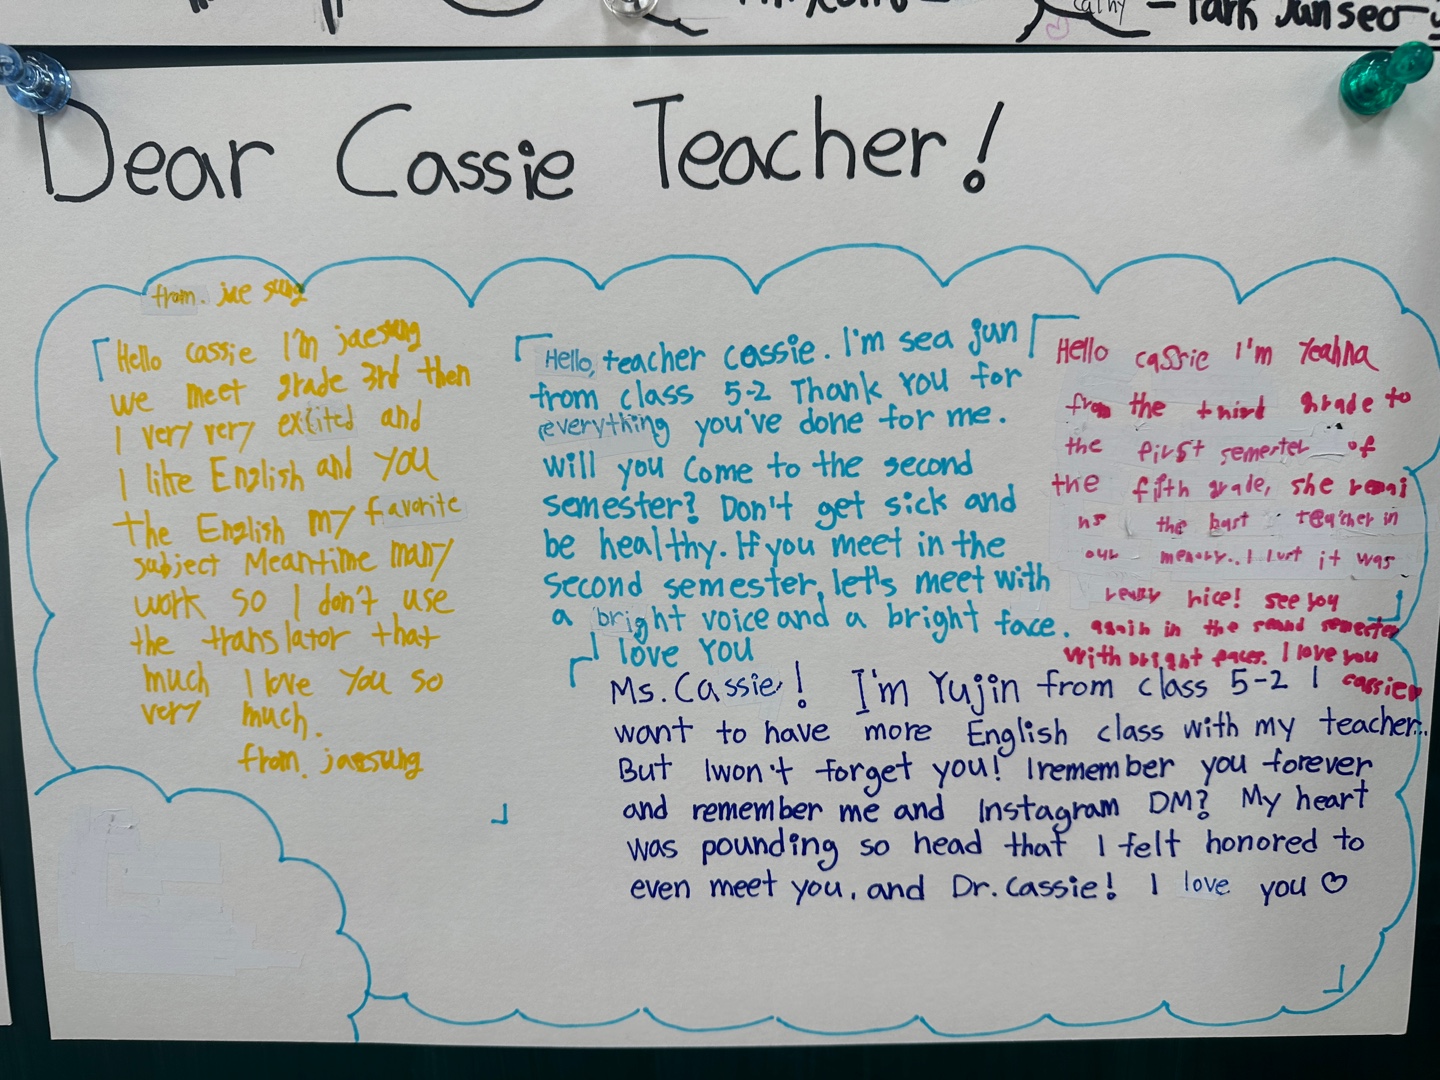 cathy - Park Jun seo
Dear Cassie Teacher!
from. jae sung
Hello cassie I'm jaesung
we meet grade 3rd then
I very very excited and
I like English and you
the English my favorite
subject Meantime many
work so I don't use
the translator that
much I love you so
very much.
from. jaesung
Hello, teacher cassie. I'm sea jun
from class 5-2 Thank you for
everything you've done for me.
will you come to the second
semester? Don't get sick and
be healthy. If you meet in the
second semester, let's meet with
a bright voice and a bright face.
love you
Hello cassie I'm Yeahna
from the third grade to
the first semester of
the fifth grade, she remai
ns the bast teacher in
our memory.. I it was
really nice! see you
again in the semester
with bright faces. I love you
cassie
Ms. Cassie! I'm Yujin from class 5-2 I
want to have more English class with my teacher...
But I won't forget you! I remember you forever
and remember me and Instagram DM? My heart
was pounding so head that I felt honored to
even meet you, and Dr. Cassie! I love you ♡